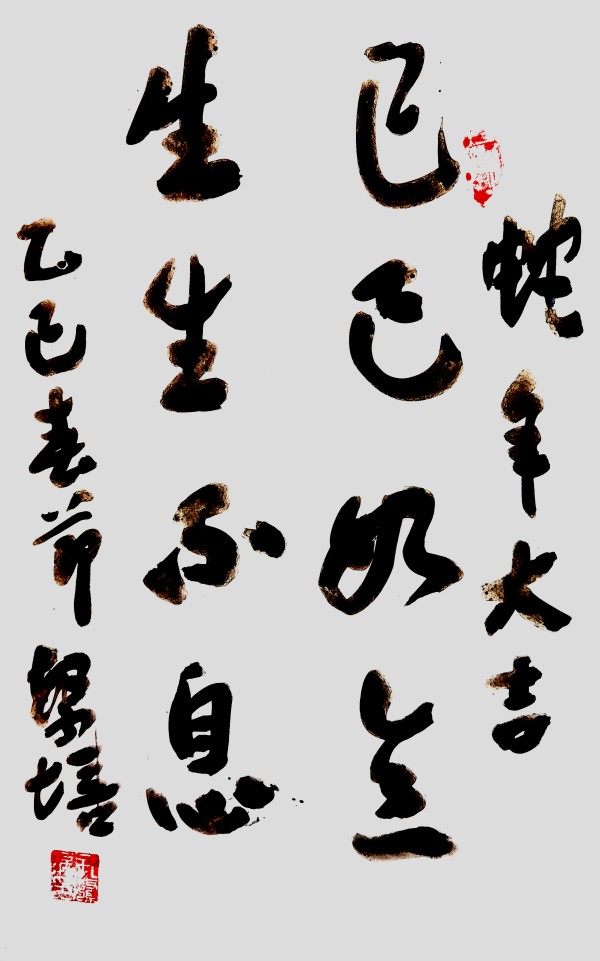 蛇年大吉
巳巳如意
生生不息
乙巳春节
培